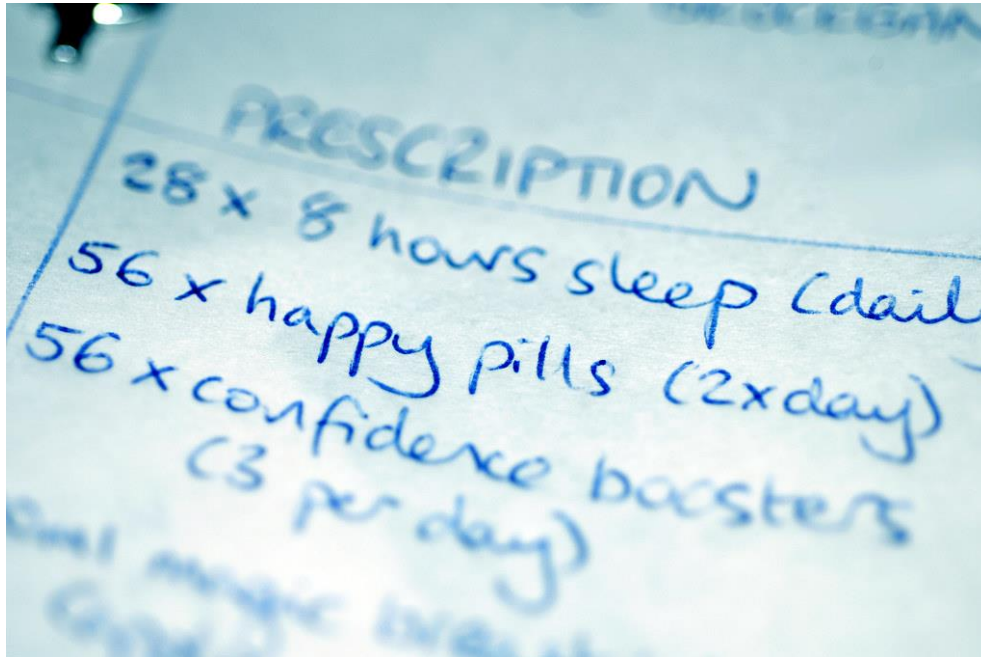 PRESCRIPTION
28 x 8 hours sleep (dail
56 x happy pills (2xday)
56 x confidence boosters
(3 per day)
magic